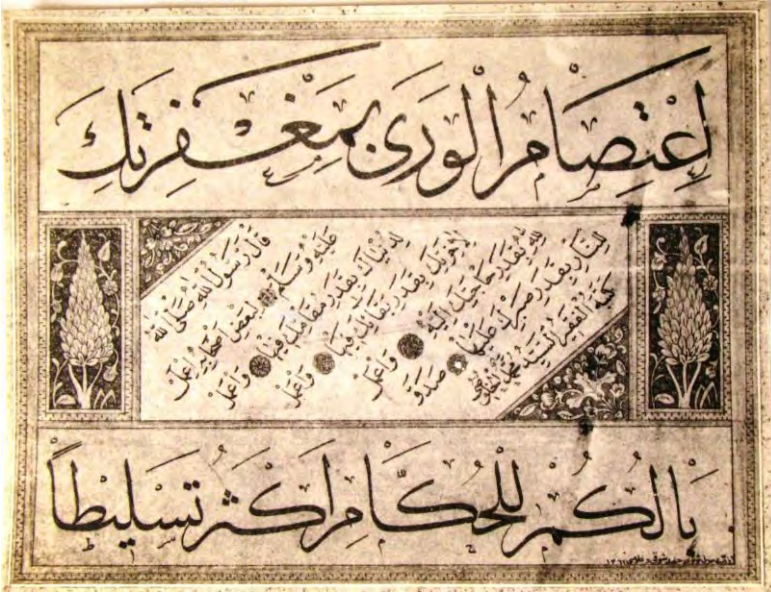 اِعْتِصَامُ الْوَرَىٰ بِمَغْفِرَتِكَ
قَالَ رَسُولُ اللهِ صَلَّى اللهُ
عَلَيْهِ وَسَلَّمَ لِبَعْضِ أَصْحَابِهِ اِعْمَلْ
لِدُنْيَاكَ بِقَدَرِ مَقَامِكَ فِيهَا وَاعْمَلْ
لِآخِرَتِكَ بِقَدَرِ بَقَائِكَ فِيهَا وَاعْمَلْ
لِلّٰهِ بِقَدَرِ حَاجَتِكَ إِلَيْهِ وَاعْمَلْ
لِلنَّارِ بِقَدَرِ صَبْرِكَ عَلَيْهَا صَدَق
كَتَبَهُ الْفَقِيرُ السَّيِّد مُحَمَّد
لِلْحُكَّامِ اَكْثَرُ تَسْلِيطاً